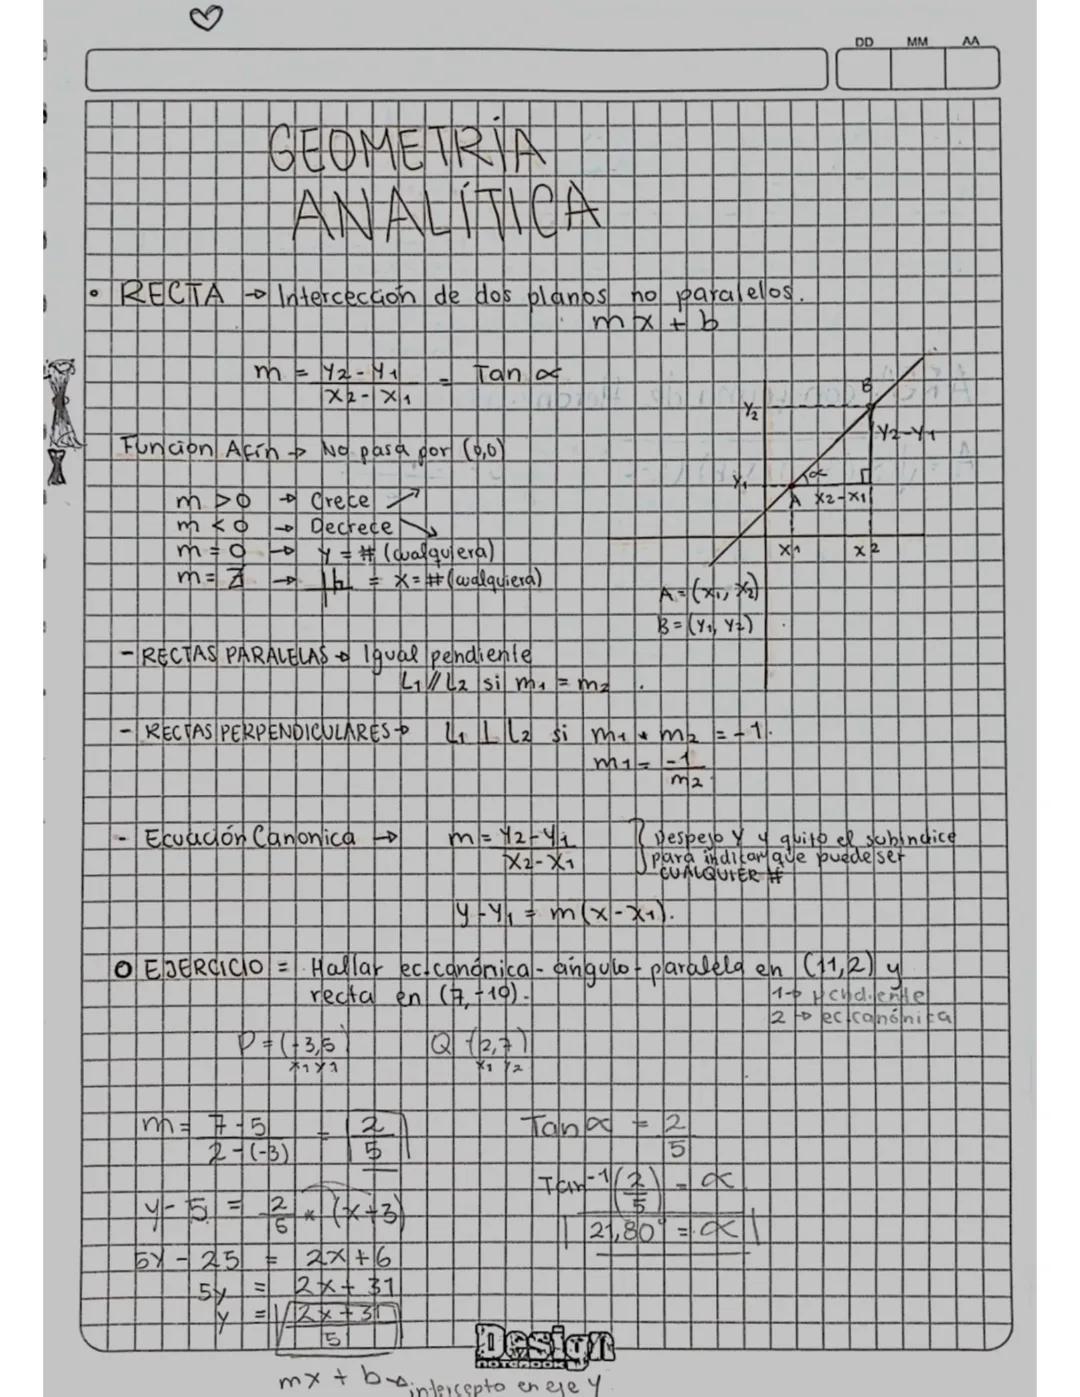 DD MM AA
GEOMETRÍA
ANALÍTICA
• RECTA → Intercección de dos planos no paralelos.
mx + b
m = Y2 - Y1 / X2 - X1 = Tan α
Función Afín → No pasa por (0,0)
m > 0 → Crece ↗
m < 0 → Decrece ↘
m = 0 → Y = # (cualquiera)
m = → = X = # (cualquiera)
B
Y2
Y2-Y1
α
Y1
A X2-X1
X1 X2
A = (X1, X2)
B = (Y1, Y2)
- RECTAS PARALELAS → Igual pendiente
L1 // L2 si m1 = m2.
- RECTAS PERPENDICULARES → L1 ⊥ L2 si m1 * m2 = -1.
m1 = -1 / m2
- Ecuación Canonica → m = Y2 - Y1 / X2 - X1 } Despejo Y y quito el subindice
para indicar que puede ser
CUALQUIER #
y - Y1 = m(x - X1).
O EJERCICIO = Hallar ec.canónica - ángulo - paralela en (11,2) y
recta en (7,-10).
1→ pendiente
2 → ec.canónica
P = (-3,5) Q (2,7)
X1 Y1 X1 Y2
m = 7-5 / 2-(-3) = 2/5
Tan α = 2/5
Tan-1(2/5) = α
y - 5 = 2/5 * (x+3)
21,80° = α
5Y - 25 = 2x + 6
5y = 2x + 31
y = 2x + 31 / 5
Design
NOTEBOOK
mx + b → intersepto en eje Y